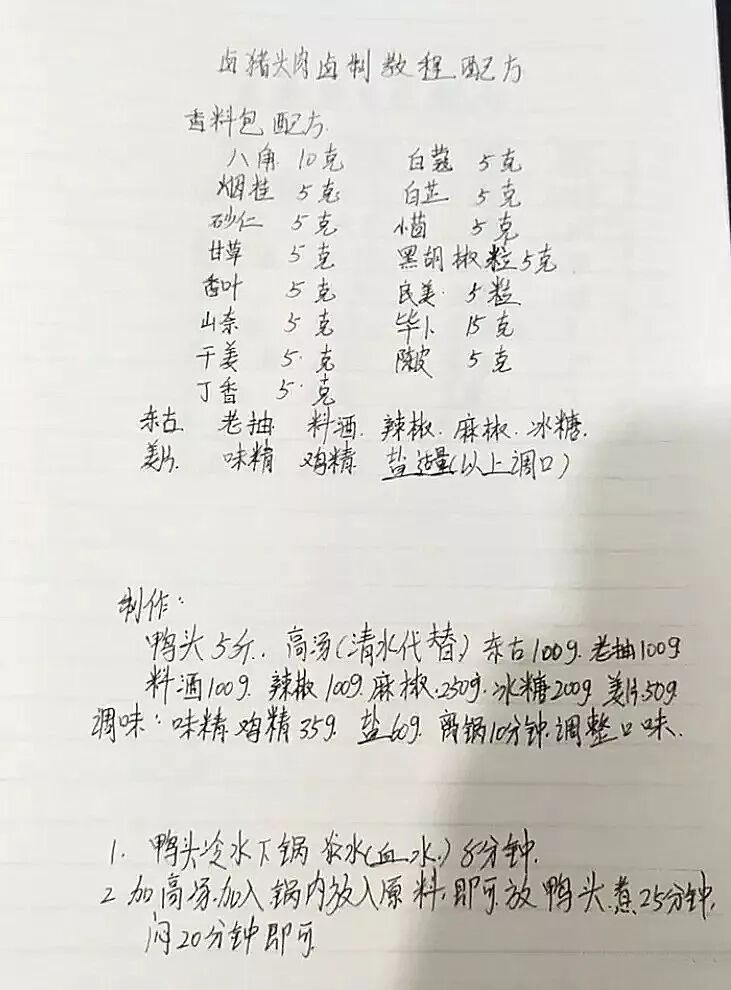 卤猪头肉卤制教程配方
香料包配方
八角 10克 白蔻 5克
烟桂 5克 白芷 5克
砂仁 5克 小茴 5克
甘草 5克 黑胡椒粒5克
香叶 5克 良姜 5粒
山奈 5克 毕卜 15克
干姜 5克 陈皮 5克
丁香 5克
东古 老抽 料酒 辣椒. 麻椒. 冰糖.
姜片 味精 鸡精 盐适量(以上调口)
制作:
鸭头5斤. 高汤(清水代替) 东古100g. 老抽100g
料酒100g. 辣椒100g. 麻椒.250g. 冰糖200g 姜片50g
调味: 味精.鸡精35g. 盐60g. 离锅10分钟.调整口味.
1. 鸭头冷水下锅 汆水(血水.) 8分钟.
2 加高汤.加入锅内放入原料,即可放鸭头.煮25分钟,
闷20分钟即可